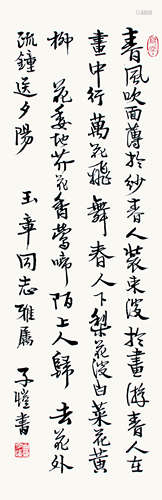 春風吹面薄於紗春人裝束淡於畫游春人在
畫中行萬花飛舞春人下梨花淡白菜花黃
柳花委地芥花香鶯啼陌上人歸去花外
疏鐘送夕陽
玉章同志雅屬
子愷書